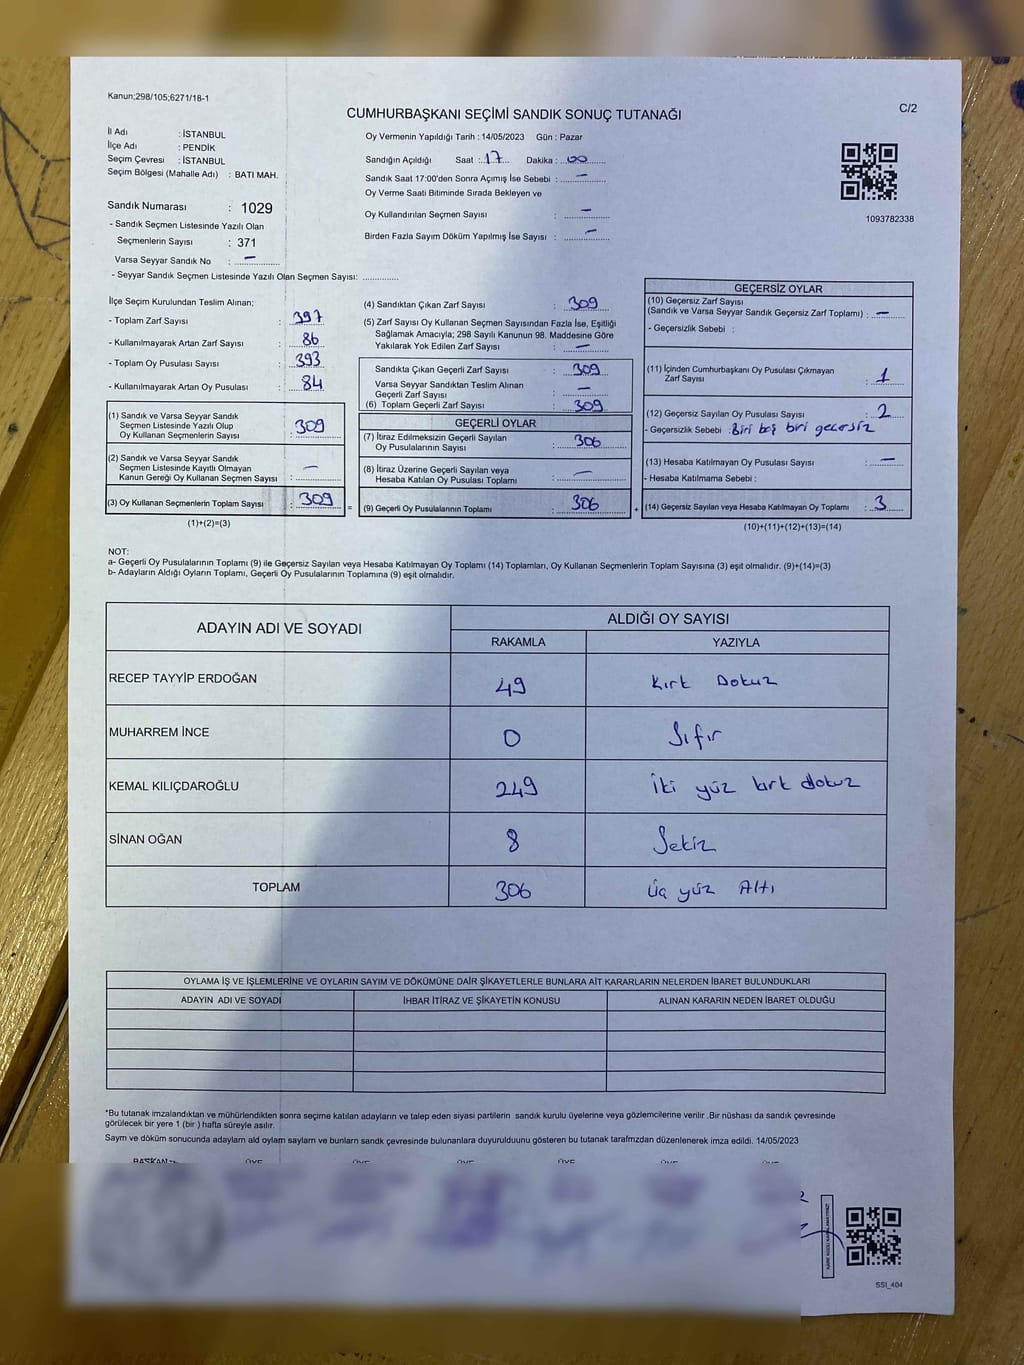 Kanun;298/105;6271/18-1
C/2
CUMHURBAŞKANI SEÇİMİ SANDIK SONUÇ TUTANAĞI
İl Adı : İSTANBUL
İlçe Adı : PENDİK
Seçim Çevresi : İSTANBUL
Seçim Bölgesi (Mahalle Adı) : BATI MAH.
Sandık Numarası : 1029
- Sandık Seçmen Listesinde Yazılı Olan
Seçmenlerin Sayısı : 371
Varsa Seyyar Sandık No : —
- Seyyar Sandık Seçmen Listesinde Yazılı Olan Seçmen Sayısı: ..............
Oy Vermenin Yapıldığı Tarih : 14/05/2023 Gün : Pazar
Sandığın Açıldığı Saat : 17 Dakika : 00
Sandık Saat 17:00'den Sonra Açımış İse Sebebi : —
Oy Verme Saati Bitiminde Sırada Bekleyen ve
Oy Kullandırılan Seçmen Sayısı : —
Birden Fazla Sayım Döküm Yapılmış İse Sayısı : —
1093782338
İlçe Seçim Kurulundan Teslim Alınan;
- Toplam Zarf Sayısı : 397
- Kullanılmayarak Artan Zarf Sayısı : 86
- Toplam Oy Pusulası Sayısı : 393
- Kullanılmayarak Artan Oy Pusulası : 84
(1) Sandık ve Varsa Seyyar Sandık
Seçmen Listesinde Yazılı Olup
Oy Kullanan Seçmenlerin Sayısı : 309
(2) Sandık ve Varsa Seyyar Sandık
Seçmen Listesinde Kayıtlı Olmayan
Kanun Gereği Oy Kullanan Seçmen Sayısı : —
(3) Oy Kullanan Seçmenlerin Toplam Sayısı : 309
(1)+(2)=(3)
(4) Sandıktan Çıkan Zarf Sayısı : 309
(5) Zarf Sayısı Oy Kullanan Seçmen Sayısından Fazla İse, Eşitliği
Sağlamak Amacıyla; 298 Sayılı Kanunun 98. Maddesine Göre
Yakılarak Yok Edilen Zarf Sayısı : —
Sandıkta Çıkan Geçerli Zarf Sayısı : 309
Varsa Seyyar Sandıktan Teslim Alınan
Geçerli Zarf Sayısı : —
(6) Toplam Geçerli Zarf Sayısı : 309
GEÇERLİ OYLAR
(7) İtiraz Edilmeksizin Geçerli Sayılan
Oy Pusulalarının Sayısı : 306
(8) İtiraz Üzerine Geçerli Sayılan veya
Hesaba Katılan Oy Pusulası Toplamı : —
= (9) Geçerli Oy Pusulalarının Toplamı : 306 +
GEÇERSİZ OYLAR
(10) Geçersiz Zarf Sayısı
(Sandık ve Varsa Seyyar Sandık Geçersiz Zarf Toplamı) : —
- Geçersizlik Sebebi :
(11) İçinden Cumhurbaşkanı Oy Pusulası Çıkmayan
Zarf Sayısı : 1
(12) Geçersiz Sayılan Oy Pusulası Sayısı : 2
- Geçersizlik Sebebi : Biri boş biri geçersiz
(13) Hesaba Katılmayan Oy Pusulası Sayısı : —
- Hesaba Katılmama Sebebi :
(14) Geçersiz Sayılan veya Hesaba Katılmayan Oy Toplamı : 3
(10)+(11)+(12)+(13)=(14)
NOT:
a- Geçerli Oy Pusulalarının Toplamı (9) ile Geçersiz Sayılan veya Hesaba Katılmayan Oy Toplamı (14) Toplamları, Oy Kullanan Seçmenlerin Toplam Sayısına (3) eşit olmalıdır. (9)+(14)=(3)
b- Adayların Aldığı Oyların Toplamı, Geçerli Oy Pusulalarının Toplamına (9) eşit olmalıdır.
ADAYIN ADI VE SOYADI ALDIĞI OY SAYISI
RAKAMLA YAZIYLA
RECEP TAYYİP ERDOĞAN 49 Kırk Dokuz
MUHARREM İNCE 0 Sıfır
KEMAL KILIÇDAROĞLU 249 İki yüz kırk dokuz
SİNAN OĞAN 8 Sekiz
TOPLAM 306 Üç yüz Altı
OYLAMA İŞ VE İŞLEMLERİNE VE OYLARIN SAYIM VE DÖKÜMÜNE DAİR ŞİKAYETLERLE BUNLARA AİT KARARLARIN NELERDEN İBARET BULUNDUKLARI
ADAYIN ADI VE SOYADI İHBAR İTİRAZ VE ŞİKAYETİN KONUSU ALINAN KARARIN NEDEN İBARET OLDUĞU
*Bu tutanak imzalandıktan ve mühürlendikten sonra seçime katılan adayların ve talep eden siyasi partilerin sandık kurulu üyelerine veya gözlemcilerine verilir .Bir nüshası da sandık çevresinde
görülecek bir yere 1 (bir ) hafta süreyle asılır.
Sayım ve döküm sonucunda adaylam ald oylam saylam ve bunlarn sandk çevresinde bulunanlara duyurulduunu gösteren bu tutanak tarafmzdan düzenlenerek imza edildi. 14/05/2023
BAŞKAN ÜYE ÜYE ÜYE ÜYE ÜYE ÜYE
SSI_404